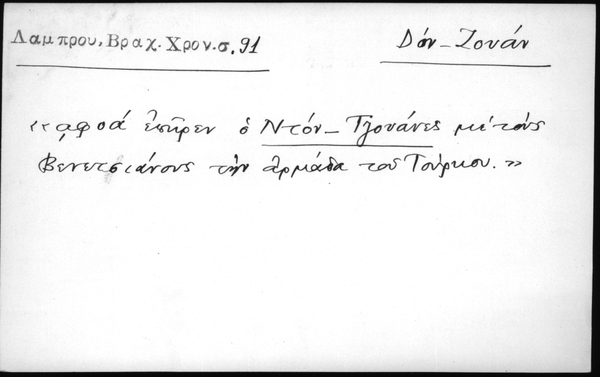 Λαμπρου, Βραχ. Χρον. σ. 91
Δόν - Ζουάν
«αφοά ἐπῆρεν ὁ Ντόν - Τζουάνες μὲ τοὺς
Βενετσιάνους τὴν ἀρμάδα τοῦ Τούρκου.»